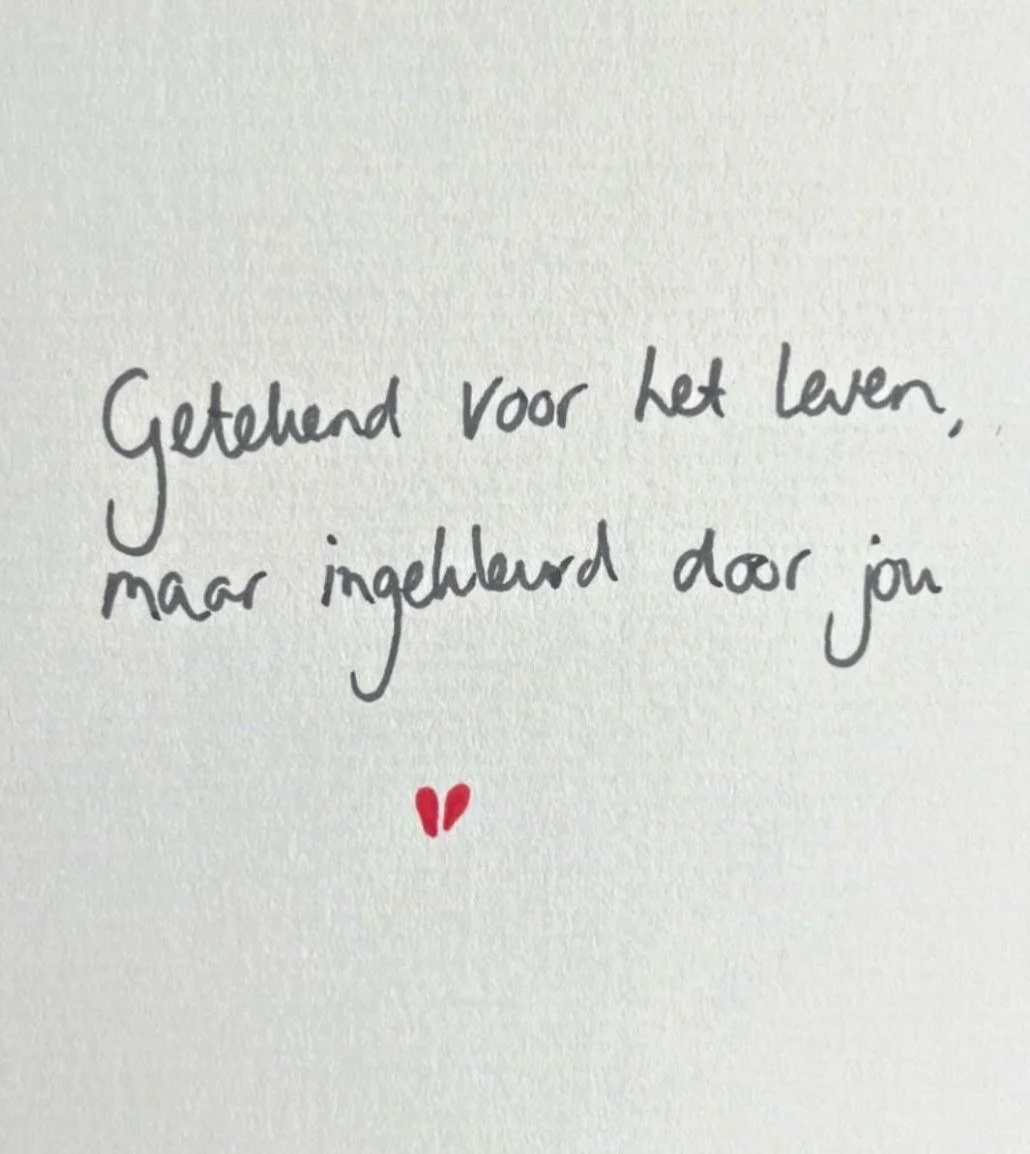 Getekend voor het leven,
maar ingekleurd door jou